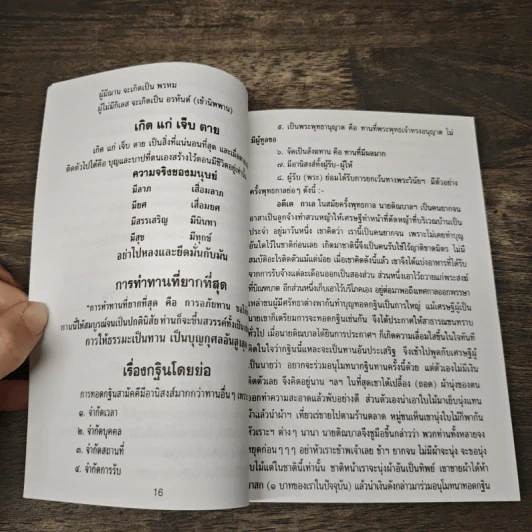 ผู้มีฌาน จะเกิดเป็น พรหม
ผู้ไม่มีกิเลส จะเกิดเป็น อรหันต์ (เข้านิพพาน)
เกิด แก่ เจ็บ ตาย
เกิด แก่ เจ็บ ตาย เป็นสิ่งที่แน่นอนที่สุด และเมื่อตาย
ติดตัวไปได้คือ บุญและบาปที่ตนเองสร้างไว้ตอนมีชีวิตอยู่เท่านั้น
ความจริงของมนุษย์
มีลาภ เสื่อมลาภ
มียศ เสื่อมยศ
มีสรรเสริญ มีนินทา
มีสุข มีทุกข์
อย่าไปหลงและยึดมั่นกับมัน
การทำทานที่ยากที่สุด
"การทำทานที่ยากที่สุด คือ การอภัยทาน
การให้ธรรมะเป็นทาน เป็นบุญกุศลอันสูง
เรื่องกฐินโดยย่อ
การทอดกฐินสามัคคีมีอานิสงส์มากกว่าทานอื่นๆ เพราะ
๑. จำกัดเวลา
๒. จำกัดบุคคล
๓. จำกัดสถานที่
๔. จำกัดการรับ
16
๕. เป็นพระพุทธานุญาต คือ ทานที่พระพุทธเจ้าทรงอนุญาต ไม่
มีผู้ทูลขอ
๖. จัดเป็นสังฆทาน คือ ทานที่มีผลมาก
๗. มีอานิสงส์ทั้งผู้รับ-ผู้ให้
๘. ผู้รับ (พระ) ย่อมได้รับการยกเว้นทางพระวินัยฯ มีตัวอย่าง
ครั้งพุทธกาลย่อๆ ดังนี้ :-
อดีเต กาเล ในสมัยครั้งพุทธกาล นายติณบาลฯ เป็นคนยากจน
อาสาเป็นลูกจ้างทำสวนหญ้าให้เศรษฐีทำหน้าที่ตัดหญ้าที่บริเวณบ้านเป็น
ประจำ อยู่มาวันหนึ่ง เขาคิดว่า เรานี้เป็นคนยากจน เพราะไม่เคยทำบุญ
อันใดไว้ในชาติก่อนเลย เกิดมาชาตินี้จึงเป็นคนรับใช้ไร้ญาติขาดมิตร ไม่มี
สมบัติอะไรติดตัวแม้แต่น้อย เมื่อเขาคิดดังนี้แล้ว เขาจึงได้แบ่งอาหารที่ได้รับ
จากการรับจ้างแต่ละเดือนออกเป็นสองส่วน ส่วนหนึ่งเอาไว้ถวายแก่พระสงฆ์
ที่บิณฑบาต อีกส่วนหนึ่งเก็บเอาไว้บริโภคเอง อยู่ต่อมาพอถึงเทศกาลออกพรรษา
เหล่าชนผู้มีศรัทธาต่างพากันทำบุญทอดกฐินเป็นการใหญ่ แม้เศรษฐีผู้เป็น
นายเขาก็เตรียมการจะทอดกฐินเช่นกัน จึงได้ประกาศให้สาธารณชนทราบ
ทั่วไป เมื่อนายติณบาลได้ยินการประกาศฯ ก็เกิดความเลื่อมใสขึ้นในใจทันที
คิดในใจว่ากฐินนี้แหละจะเป็นทานอันประเสริฐ จึงเข้าไปพูดกับเศรษฐีผู้
เป็นนายว่า อยากจะร่วมอนุโมทนากฐินทานครั้งนี้ด้วย แต่ตัวเองไม่มีเงิน
ติดตัวเลย จึงคิดอยู่นาน ฯลฯ ในที่สุดเขาได้เปลื้อง (ถอด) ผ้านุ่งของตน
ออกทำความสะอาดแล้วพับอย่างดี ส่วนตัวเองนำเอาใบไม้มาเย็บนุ่งแทน
ผ้าแล้วนำผ้าฯ เที่ยวเร่ขายไปตามร้านตลาด หมู่ชนเห็นเขานุ่งใบไม้ก็พากัน
หัวเราะฯ ต่างๆ นานา นายติณบาลจึงชูมือขึ้นกล่าวว่า พวกท่านทั้งหลายจง
หยุดก่อนๆๆๆ อย่าหัวเราะข้าพเจ้าเลย ข้าฯ ยากจน ไม่มีผ้าจะนุ่ง จะขอนุ่ง
ใบไม้แต่ในชาตินี้เท่านั้น ชาติหน้าเราจะนุ่งผ้าอันเป็นทิพย์ เขาขายผ้าได้ห้า
มาสก (๑ บาทของเราในปัจจุบัน) แล้วนำเงินดังกล่าวมาร่วมอนุโมทนาทอดกฐิน